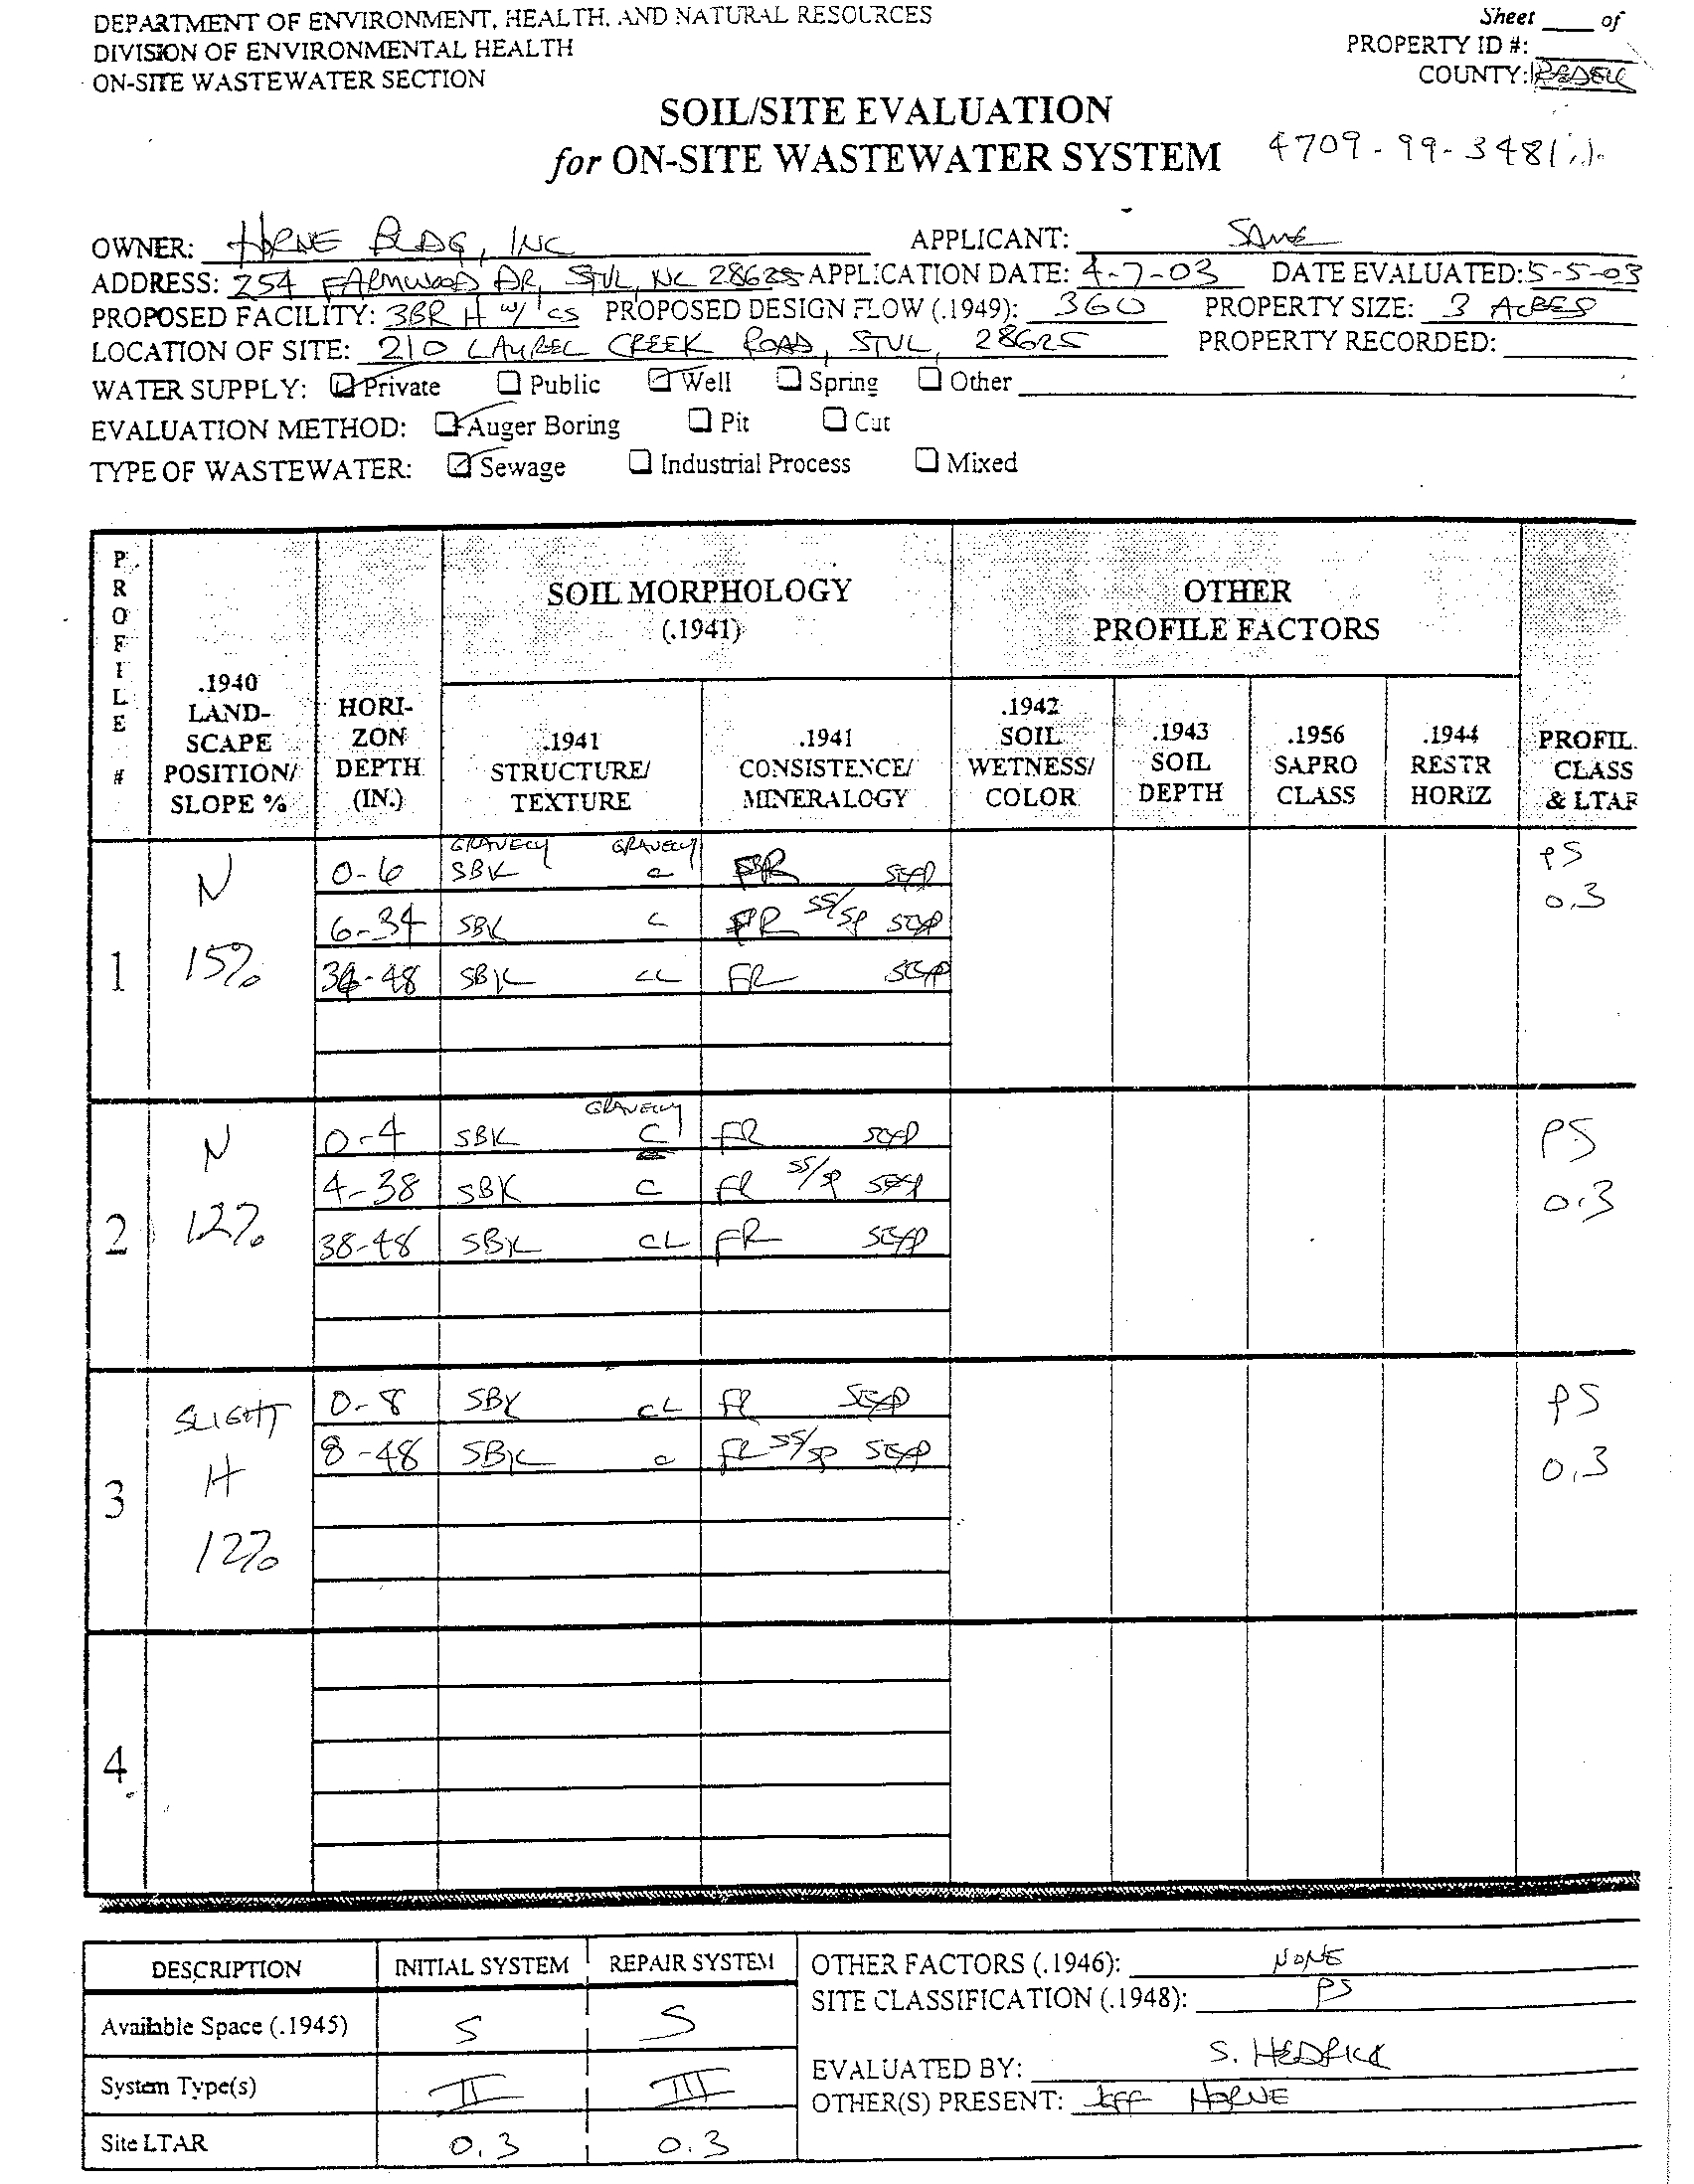 DEPARTMENT OF ENVIRONMENT, HEALTH, AND NATURAL RESOURCES
DIVISION OF ENVIRONMENTAL HEALTH
ON-SITE WASTEWATER SECTION
Sheet ____ of
PROPERTY ID #:
COUNTY: IREDELL
SOIL/SITE EVALUATION
for ON-SITE WASTEWATER SYSTEM 4709-99-3481
OWNER: HORNE BLDG, INC APPLICANT: SAME
ADDRESS: 254 FARMWOOD DR, STVL, NC 28625 APPLICATION DATE: 4-7-03 DATE EVALUATED: 5-5-03
PROPOSED FACILITY: 3BR H w/ CS PROPOSED DESIGN FLOW (.1949): 360 PROPERTY SIZE: 3 ACRES
LOCATION OF SITE: 210 LAUREL CREEK ROAD, STVL, 28625 PROPERTY RECORDED:
WATER SUPPLY: Private Public Well Spring Other
EVALUATION METHOD: Auger Boring Pit Cut
TYPE OF WASTEWATER: Sewage Industrial Process Mixed
PROFILE #
.1940 LAND-SCAPE POSITION/ SLOPE %
HORI-ZON DEPTH (IN.)
SOIL MORPHOLOGY (.1941)
.1941 STRUCTURE/ TEXTURE
.1941 CONSISTENCE/ MINERALOGY
OTHER PROFILE FACTORS
.1942 SOIL WETNESS/ COLOR
.1943 SOIL DEPTH
.1956 SAPRO CLASS
.1944 RESTR HORIZ
PROFIL. CLASS & LTAR
1 N 15%
0-6 GRAVELLY SBK GRAVELLY C FR SEXP PS 0.3
6-34 SBK C FR SS/SP SEXP
34-48 SBK CL FR SEXP
2 N 12%
0-4 SBK GRAVELLY C FR SEXP PS 0.3
4-38 SBK C FR SS/P SEXP
38-48 SBK CL FR SEXP
3 SLIGHT H 12%
0-8 SBK CL FR SEXP PS 0.3
8-48 SBK C FR SS/SP SEXP
4
DESCRIPTION INITIAL SYSTEM REPAIR SYSTEM
Available Space (.1945) S S
System Type(s) II III
Site LTAR 0.3 0.3
OTHER FACTORS (.1946): NONE
SITE CLASSIFICATION (.1948): PS
EVALUATED BY: S. HEDRICK
OTHER(S) PRESENT: JEFF HORNE